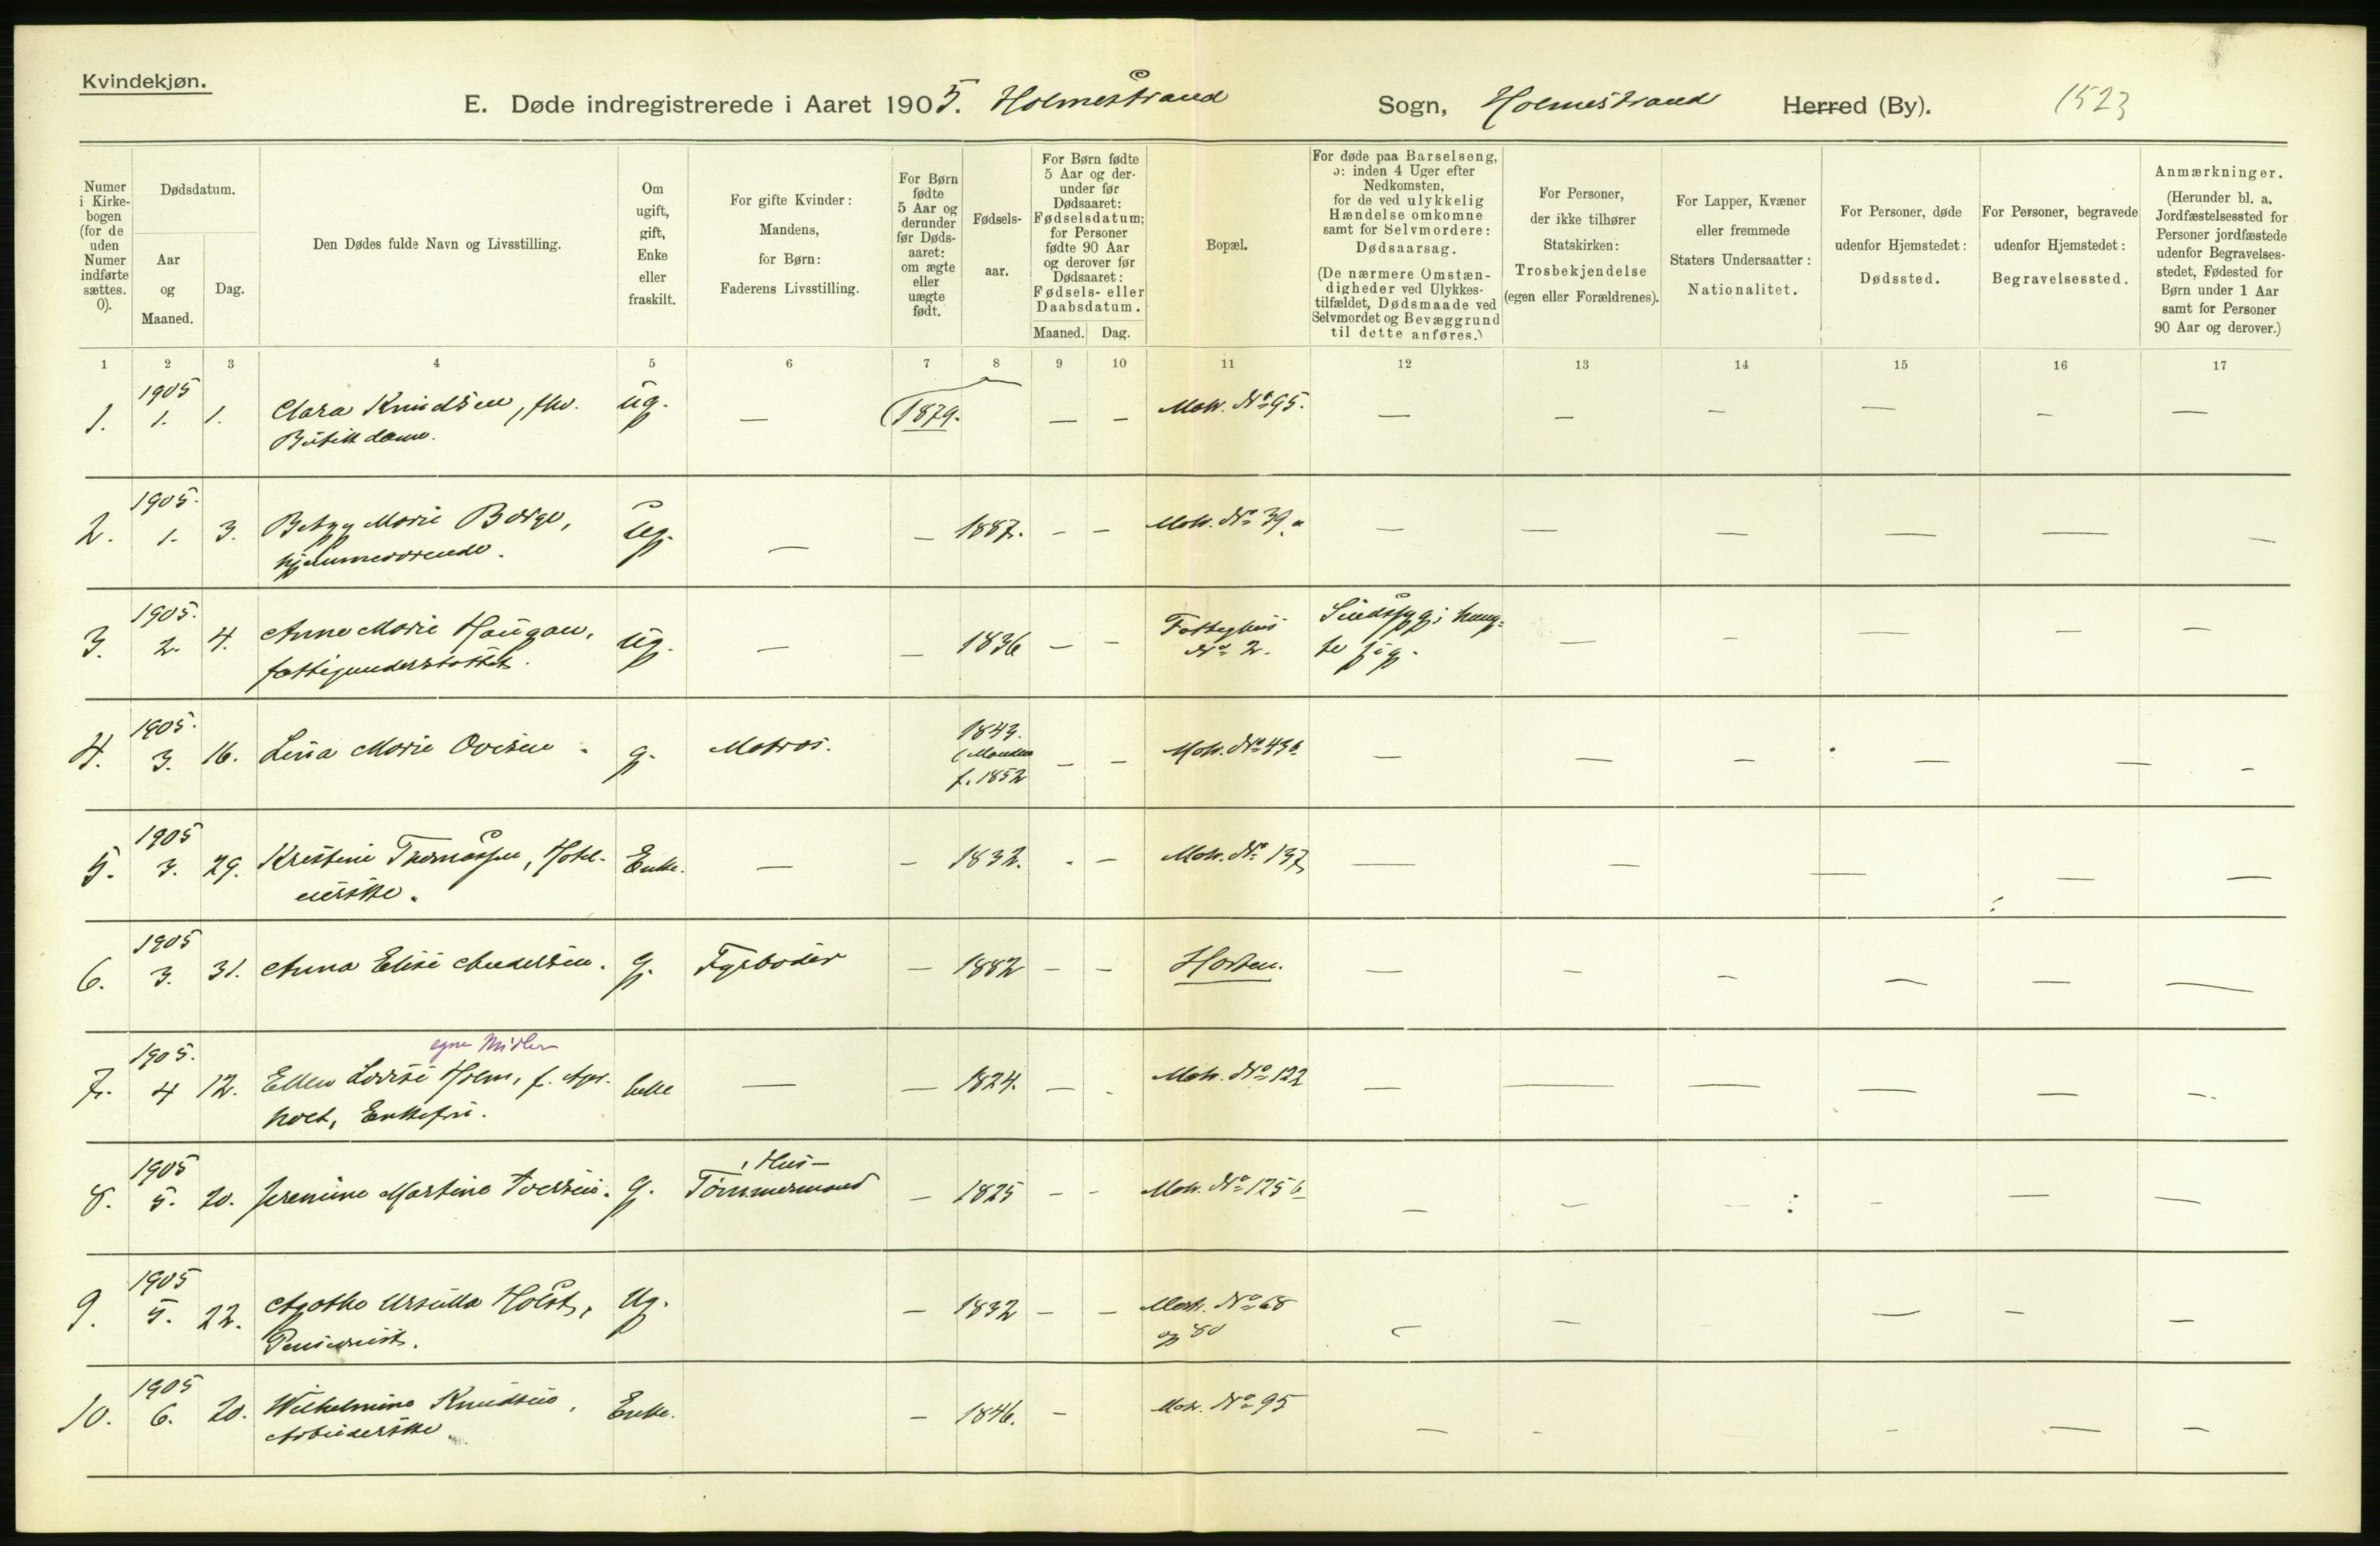 Kvindekjøn.
E. Døde indregistrerede i Aaret 1905. Holmestrand Sogn, Holmestrand Herred (By). 1523
Numer i Kirkebogen (for de uden Numer indførte sættes. 0).
Dødsdatum.
Aar og Maaned.
Dag.
Den Dødes fulde Navn og Livsstilling.
Om ugift, gift, Enke eller fraskilt.
For gifte Kvinder: Mandens, for Børn: Faderens Livsstilling.
For Børn fødte 5 Aar og derunder før Dødsaaret: om ægte eller uægte født.
Fødselsaar.
For Børn fødte 5 Aar og derunder før Dødsaaret: Fødselsdatum; for Personer fødte 90 Aar og derover før Dødsaaret: Fødsels- eller Daabsdatum.
Maaned. Dag.
Bopæl.
For døde paa Barselseng, ɔ: inden 4 Uger efter Nedkomsten, for de ved ulykkelig Hændelse omkomne samt for Selvmordere: Dødsaarsag.
(De nærmere Omstændigheder ved Ulykkestilfældet, Dødsmaade ved Selvmordet og Bevæggrund til dette anføres.)
For Personer, der ikke tilhører Statskirken: Trosbekjendelse (egen eller Forældrenes).
For Lapper, Kvæner eller fremmede Staters Undersaatter: Nationalitet.
For Personer, døde udenfor Hjemstedet: Dødssted.
For Personer, begravede udenfor Hjemstedet: Begravelsessted.
Anmærkninger.
(Herunder bl. a. Jordfæstelsessted for Personer jordfæstede udenfor Begravelsesstedet, Fødested for Børn under 1 Aar samt for Personer 90 Aar og derover.)
1 2 3 4 5 6 7 8 9 10 11 12 13 14 15 16 17
1. 1905 1. 1. Clara Knudsen, fhv. Ug. — (1879. — — Matr. No 95. — — — — — —
Butikdame.
2. 1905. 1. 3. Betzy Marie Borge, Ug. — — 1887. — — Matr. No 39 a — — — — — —
hjemmeværende.
3. 1905. 2. 4. Anne Marie Haugan, Ug. — — 1836 — — Fattighus No 2. Sindssyg; hæng-
fattigunderstøttet. te sig. — — — — —
4. 1905. 3. 16. Lina Marie Ovesen. g. Matros. 1849. (Manden f. 1852 — — Matr. No 49 b — — — — — —
5. 1905 3. 29. Kristine Thomassen, Hotel- Enke. — — 1832. - — Matr. No 137 — — — — — —
eierske.
6. 1905 3. 31. Anna Elise Andersen. g. Fyrbøder — 1882 — — Horten. — — — — — —
egne Midler
7. 1905. 4 12. Ellen Lovise Holm, f. Enke — — 1824. — - Matr. No 122 — — — — — —
Enkefru.
8. 1905 5. 20. Jeremine Martine Iversen. g. Hus-
Tømmermand — 1825 — - Matr. No 125 b — — — - — —
9. 1905 5. 22. Agathe Ursulla Holst, Ug. — 1832 — — Matr. No 68
Pensionist. og 80 — — — — —
10. 1905 6. 20. Wilhelmine Knudsen, Enke. — 1846. — Matr. No 95 — - - — —
Arbeiderske